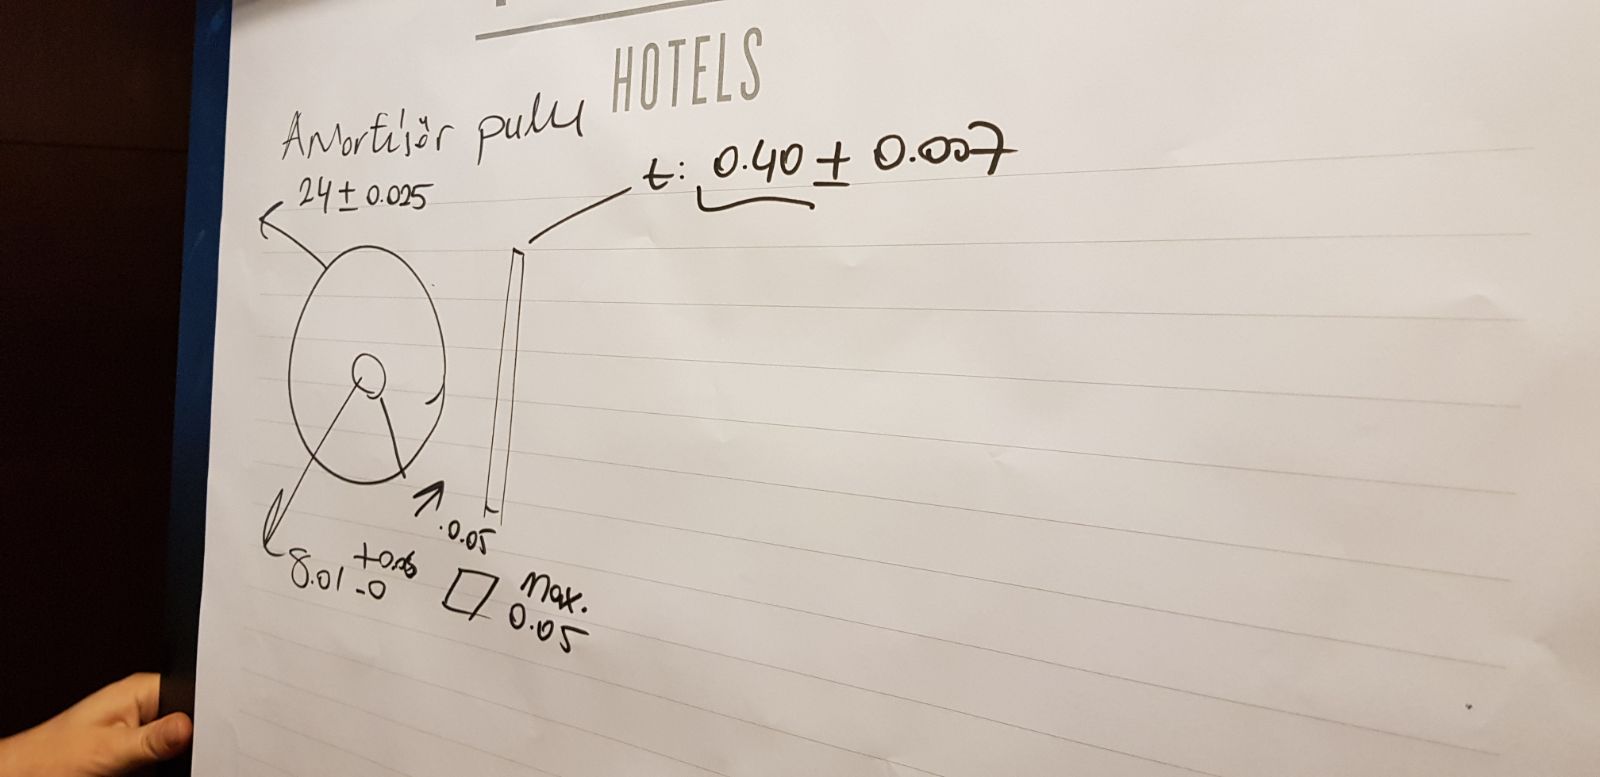 HOTELS
Amortisör pulu
t: 0.40 ± 0.007
24 ± 0.025
0.05
8.01 -0
Max.
0.05